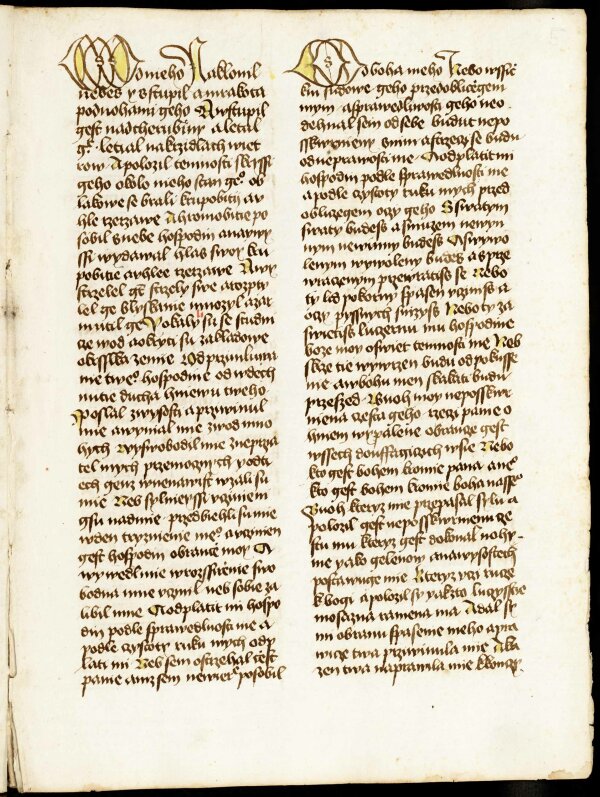 meho Naklonil
nebes y sstupil a mrakota
pod nohami geho A wstupil
gest nad cherubiny a letal
ge letal na krzidlach wiet
row A polozil temnosti skryss
geho okolo nieho stan geo ob
lakowe se brali krupobity a v
hle rzerzawe A hromobitie po
sobil s nebe hospodin a nawy
ssi wydawal hlas swoy kru
pobitie a vhlee rzerzawe A wy
strzelel gt strzely swe a rozpty
lel ge blyskanie mnozyl a zar
mutil ge Vokaly su se studni
cze wod a okryti su zakladowe
okrsslka zemie Od przimluwa
nie tweo hospodine od wdech
nutie ducha hniewu tweho
Poslal z wysosti a przywinul
mie a wynial mie z wod mno
hych Wyswobodil mie z neprza
tel mych przemoznych y od tie
ch genz v nenawist wzali su
mie Neb sylniegssi vczinieni
gsu nadmie przedbiehli su mie
w den tryznienie meo a vczinien
gest hospodin obrancze moy A
wywedl mie w rozssirzenie swo
bodna mie vczinil neb sobie za
libil mne A odplatit mi hospo
din podle sprawedlnosti me a
podle czystoty ruku mych odp
lati mi Neb sem ostrzehal cest
panie aniz sem neweio posobil
Od boha meho Nebo wssic
kni sudowe geho przed obliczegem
mym a sprawedlnosti geho neo
dehnal sem od sebe budut nepo
sskwrnieny s nim a strzecy se budu
od neprawosti me A odplatit mi
hospodin podle sprawedlnosti me
a podle czystoty ruku mych przed
obliczegem oczy geho S swatym
swaty budess a s muzem newyn
nym newinny budess A s wywo
lenym wywoleny budess a s prze
wraczenym przewratiss se Nebo
ty lid pokorny spasen vczinss a
oczy pyssnych snizyss Nebo ty za
swietiss luczernu mu hospodine
boze moy oswiet temnosti me Neb
skrze tie wytrzen budu od pokusse
nie a w bohu mem skakati budu
przes zed Buoh moy neposskwr
niena czesta geho rzeczi panie o
hniem wypalene obrancze gest
wssech douffagiczych w sie Nebo
kto gest bohem kromie pana aneb
kto gest bohem kromie boha nasseo
Buoh kteryz mie przepasal sylu a
polozil gest neposskwrnienu cze
stu mu Kteryz gest dokonal nohy
me yako gelenow a na wysostech
postawuge mie Kteryz vczi rucze
k bogi a polozil sy yakzto luczysstie
mosazna ramena ma A dal sy
mi obranu spasenie meho a pra
wicze twa przywinula mie A ka
zen twa naprawila mie k konczy